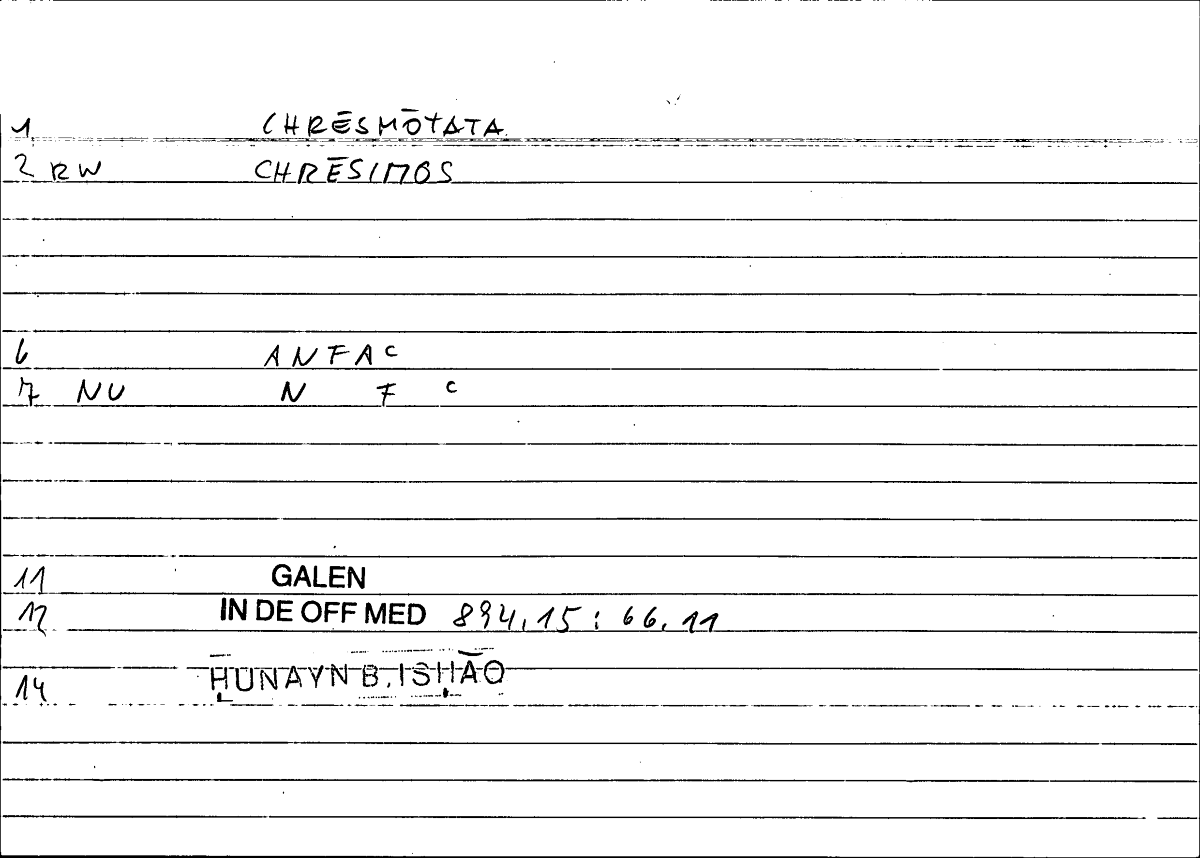 1 CHRĒSMŌTATA
2 RW CHRĒSIMOS
6 ANFAᶜ
7 NU N F ᶜ
11 GALEN
12 IN DE OFF MED 894,15 : 66,11
14 ḤUNAYN B. ISḤĀQ